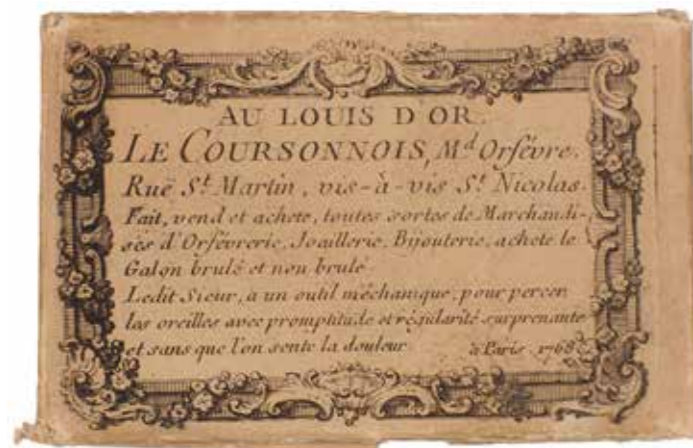 AU LOUIS D'OR.
LE COURSONNOIS, Md Orfévre.
Ruë St. Martin, vis-à-vis St. Nicolas.
Fait, vend et achete, toutes sortes de Marchandi-
ses d'Orfévrerie, Joaillerie, Bijouterie, achete le
Galon brulé et non brulé.
Ledit Sieur, a un outil méchanique, pour percer
les oreilles avec promptitude et régularité surprenante
et sans que l'on sente la douleur. à Paris. 1768